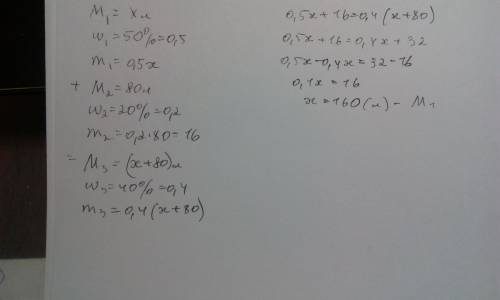 M₁ = x л
w₁ = 50% = 0,5
m₁ = 0,5x
+ M₂ = 80 л
w₂ = 20% = 0,2
m₂ = 0,2·80 = 16
= M₃ = (x+80) л
w₃ = 40% = 0,4
m₃ = 0,4(x+80)
0,5x + 16 = 0,4(x+80)
0,5x + 16 = 0,4x + 32
0,5x - 0,4x = 32 - 16
0,1x = 16
x = 160 (л) - M₁